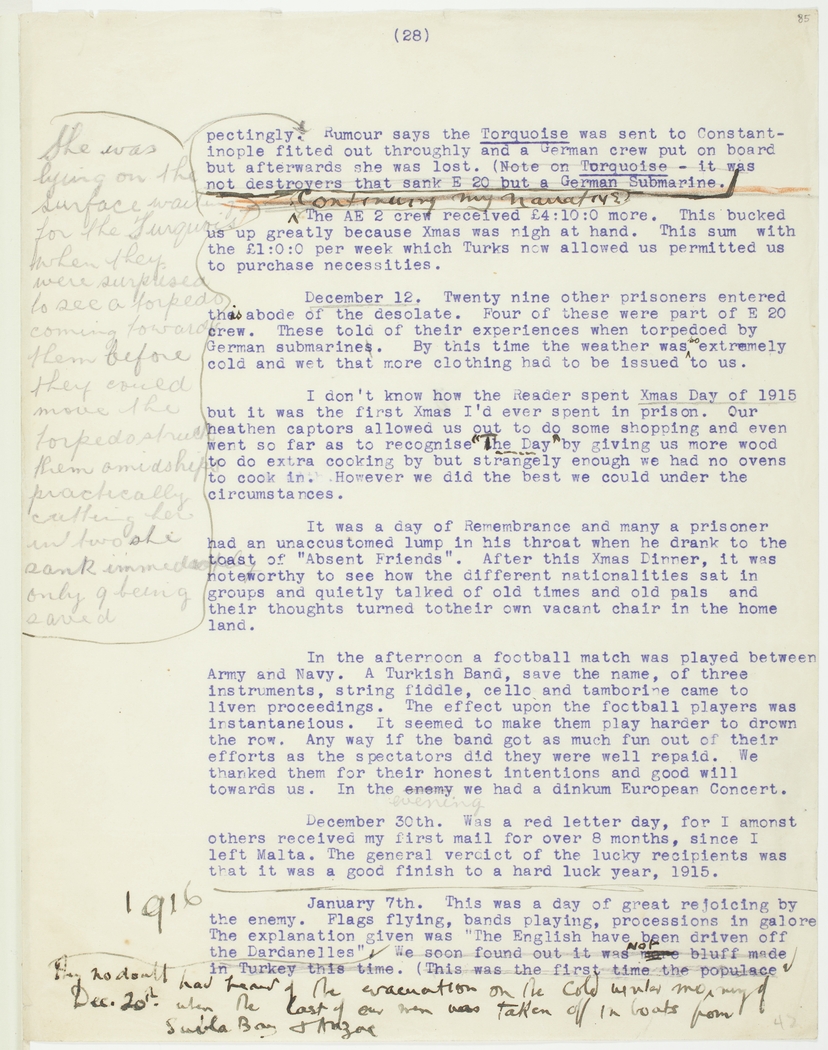 85
(28)
pectingly. Rumour says the Torquoise was sent to Constant-
inople fitted out throughly and a German crew put on board
but afterwards she was lost. (Note on Torquoise - it was
not destroyers that sank E 20 but a German Submarine.
Continuing my narrative
The AE 2 crew received £4:10:0 more. This bucked
us up greatly because Xmas was nigh at hand. This sum with
the £1:0:0 per week which Turks now allowed us permitted us
to purchase necessities.
She was
lying on the
surface waiting
for the Turquoise
when they
were surprised
to see a torpedo
coming towards
them before
they could
move the
torpedo struck
them amidships
practically
cutting her
in two she
sank immediately
only 9 being
saved
December 12. Twenty nine other prisoners entered
this abode of the desolate. Four of these were part of E 20
crew. These told of their experiences when torpedoed by
German submarines. By this time the weather was so extremely
cold and wet that more clothing had to be issued to us.
I don't know how the Reader spent Xmas Day of 1915
but it was the first Xmas I'd ever spent in prison. Our
heathen captors allowed us out to do some shopping and even
went so far as to recognise "The Day" by giving us more wood
to do extra cooking by but strangely enough we had no ovens
to cook in. However we did the best we could under the
circumstances.
It was a day of Remembrance and many a prisoner
had an unaccustomed lump in his throat when he drank to the
toast of "Absent Friends". After this Xmas Dinner, it was
noteworthy to see how the different nationalities sat in
groups and quietly talked of old times and old pals and
their thoughts turned totheir own vacant chair in the home
land.
In the afternoon a football match was played between
Army and Navy. A Turkish Band, save the name, of three
instruments, string fiddle, cello and tamborine came to
liven proceedings. The effect upon the football players was
instantaneious. It seemed to make them play harder to drown
the row. Any way if the band got as much fun out of their
efforts as the spectators did they were well repaid. We
thanked them for their honest intentions and good will
towards us. In the enemy we had a dinkum European Concert.
evening
December 30th. Was a red letter day, for I amonst
others received my first mail for over 8 months, since I
left Malta. The general verdict of the lucky recipients was
that it was a good finish to a hard luck year, 1915.
1916
January 7th. This was a day of great rejoicing by
the enemy. Flags flying, bands playing, processions in galore
The explanation given was "The English have been driven off
the Dardanelles". We soon found out it was NOT bluff made
in Turkey this time. (This was the first time the populace
They no doubt had heard of the evacuation on the cold winter morning of
Dec. 20th. when the last of our men was taken off in boats from
Suvla Bay & Anzac
42